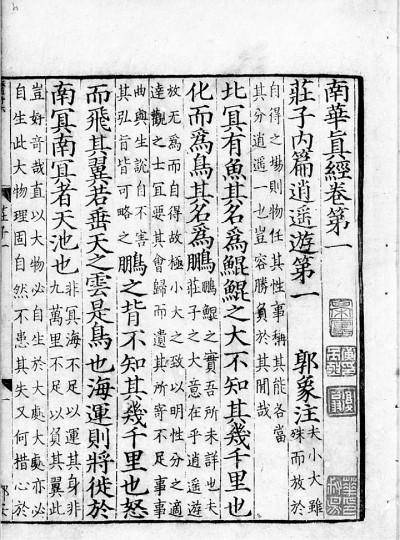 南華眞經卷第一
莊子內篇逍遙遊第一 郭象注 夫小大雖
殊而放於
自得之場則物任其性事稱其能各當
其分逍遙一也豈容勝負於其間哉
北冥有魚其名為鯤鯤之大不知其幾千里也
化而為鳥其名為鵬 鵬鯤之實吾所未詳也夫
莊子之大意在乎逍遙遊
放無為而自得故極小大之致以明性分之適
達觀之士宜要其會歸而遺其所寄不足事事
曲與生說自不害
其弘旨皆可略之 鵬之背不知其幾千里也怒
而飛其翼若垂天之雲是鳥也海運則將徙於
南冥南冥者天池也 非冥海不足以運其身非
九萬里不足以負其翼此
豈好奇哉直以大物必自生於大處大處亦必
自生此大物理固自然不患其失又何措心於